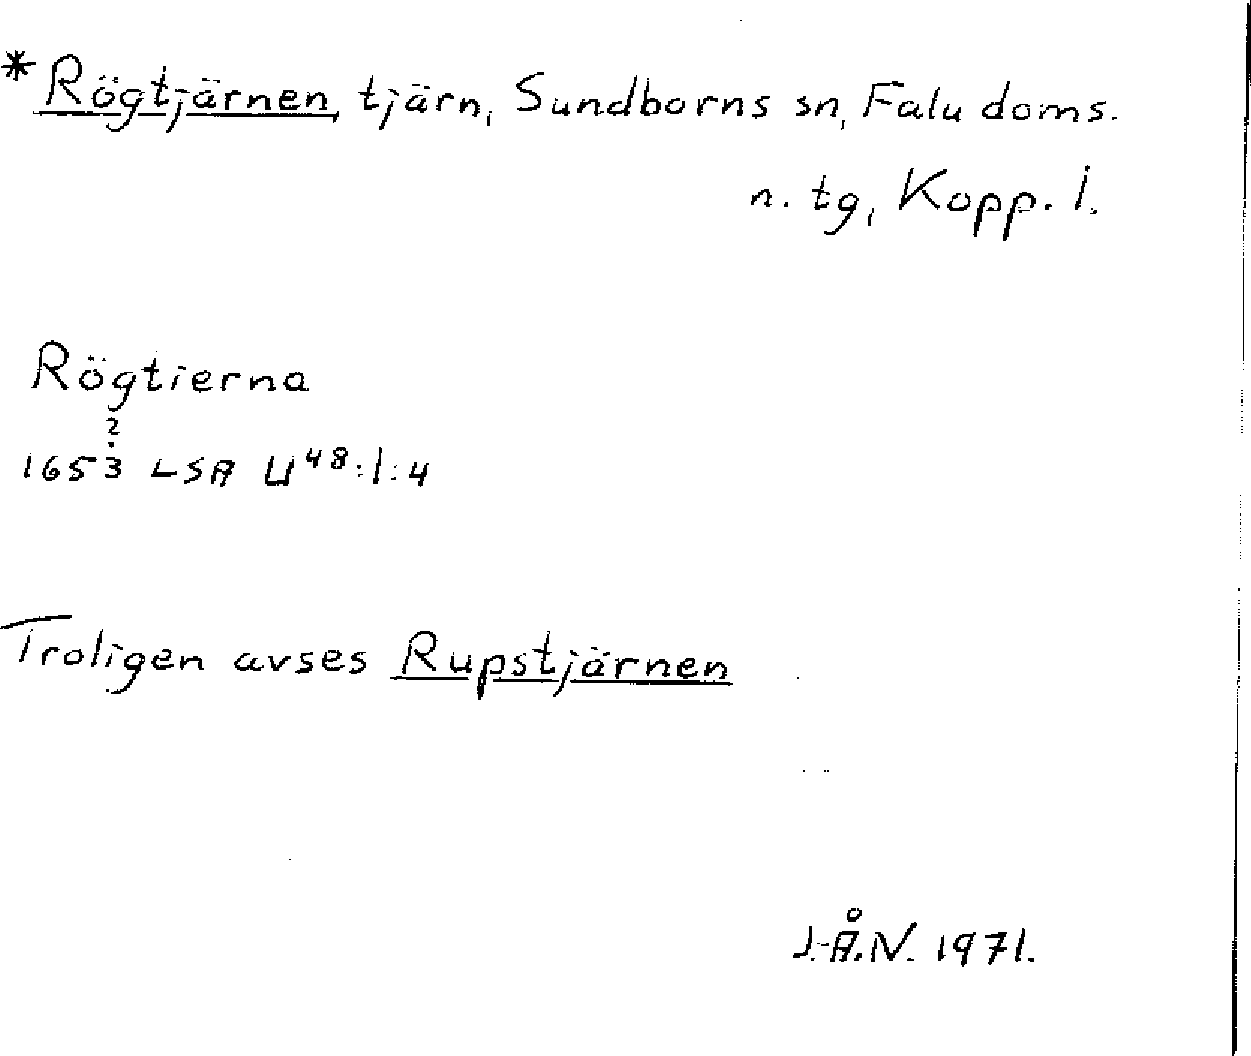 *Rögtjärnen, tjärn, Sundborns sn, Falu doms.
n. tg, Kopp. l.
Rögtierna
?
1653 LSA U48:1:4
Troligen avses Rupstjärnen
J.-Å.N. 1971.